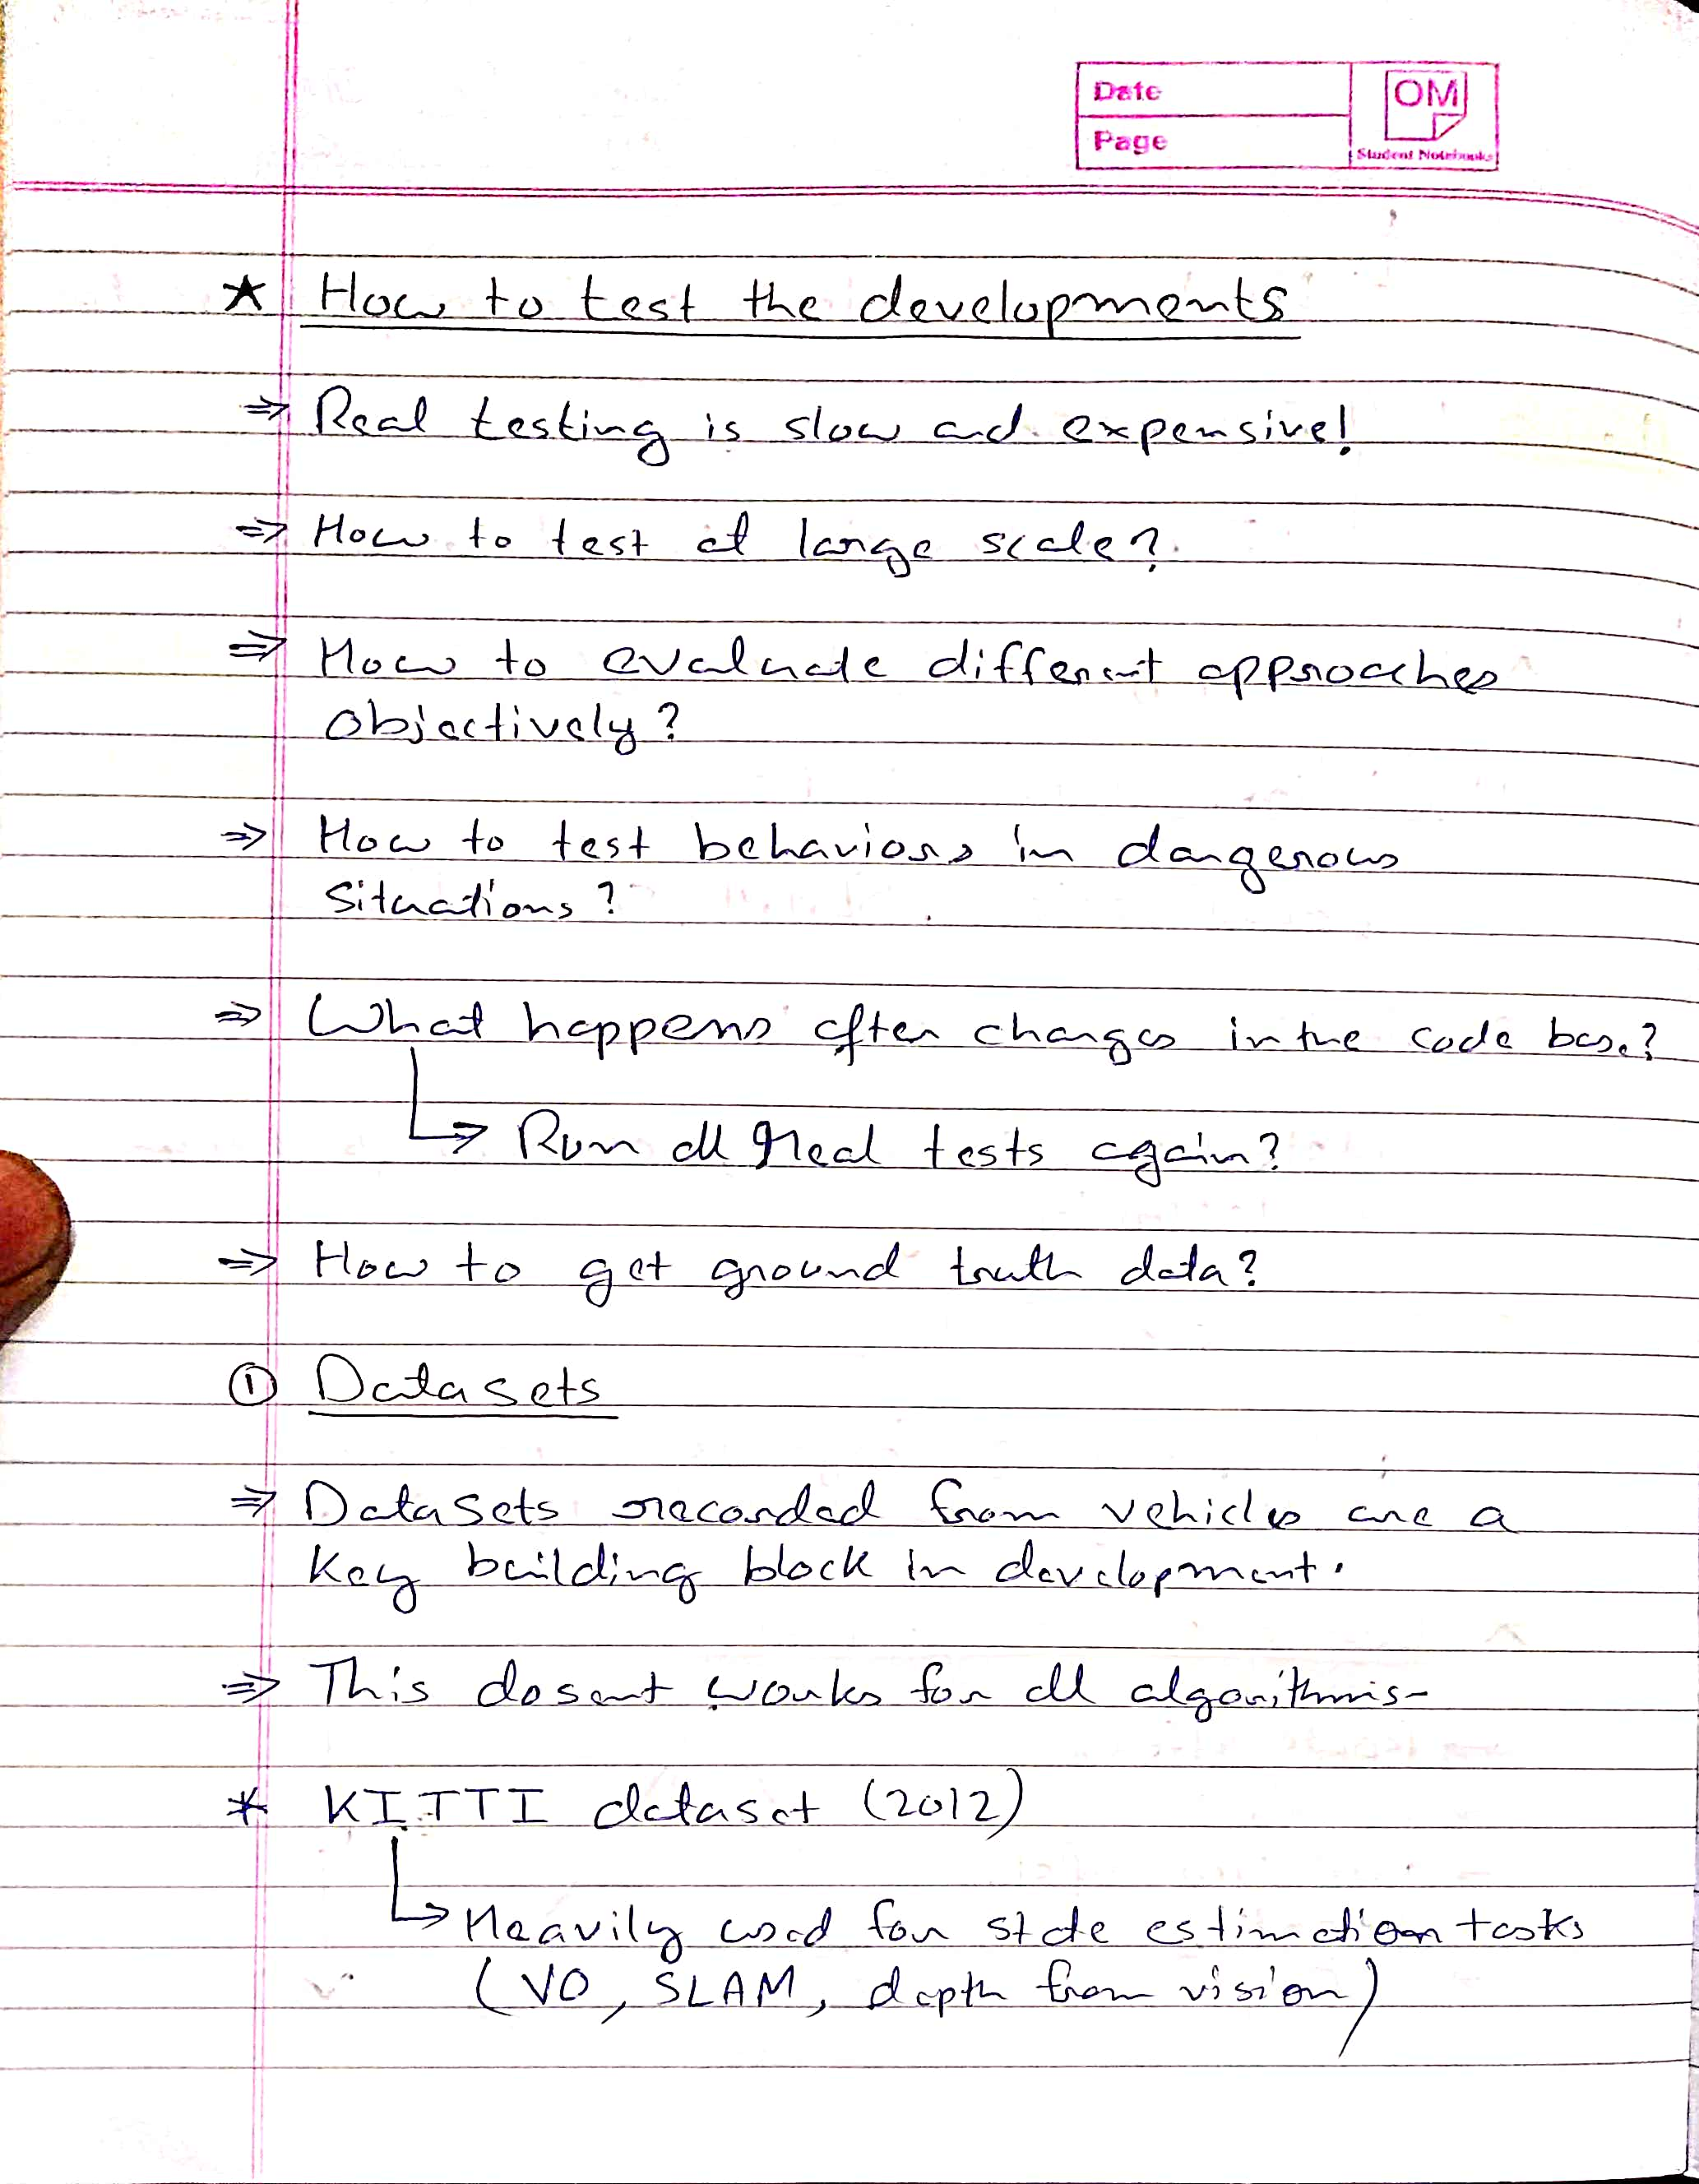 Date
Page
OM
Student Notebooks
★ How to test the developments
⇒ Real testing is slow and expensive!
⇒ How to test at large scale?
⇒ How to evaluate different approaches
objectively?
⇒ How to test behaviors in dangerous
situations?
⇒ What happens after changes in the code base?
↳ Run all real tests again?
⇒ How to get ground truth data?
① Datasets
⇒ Datasets recorded from vehicles are a
key building block in development.
⇒ This dosent works for all algorithms-
* KITTI dataset (2012)
↳ Heavily used for state estimation tasks
(VO, SLAM, depth from vision)